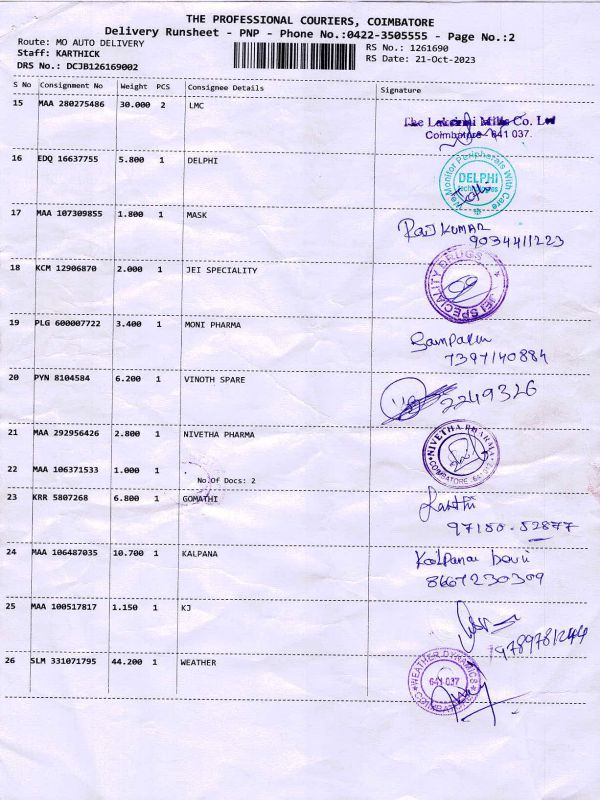 THE PROFESSIONAL COURIERS, COIMBATORE
Delivery Runsheet - PNP - Phone No.:0422-3505555 - Page No.:2
Route: MO AUTO DELIVERY
RS No.: 1261690
Staff: KARTHICK
RS Date: 21-Oct-2023
DRS No.: DCJB126169002
S No Consignment No Weight PCS Consignee Details Signature
15 MAA 280275486 30.000 2 LMC
The Lakshmi Mills Co. Ltd
Coimbatore 641 037.
16 EDQ 16637755 5.800 1 DELPHI
We Monitor Peripherals With Care
DELPHI
technologies
17 MAA 107309855 1.800 1 MASK
RAJKUMAR
9034411223
18 KCM 12906870 2.000 1 JEI SPECIALITY
JEI SPECIALITY DRUGS
19 PLG 600007722 3.400 1 MONI PHARMA
7397140884
20 PYN 8104584 6.200 1 VINOTH SPARE
2249326
21 MAA 292956426 2.800 1 NIVETHA PHARMA
NIVETHA PHARMA
COIMBATORE
22 MAA 106371533 1.000 1
No.Of Docs: 2
23 KRR 5807268 6.800 1 GOMATHI
97150-52877
24 MAA 106487035 10.700 1 KALPANA
Kalpana Devi
8667230309
25 MAA 100517817 1.150 1 KJ
9789781244
26 SLM 331071795 44.200 1 WEATHER
WEATHER DYNAMICS
641 037
COIMBATORE